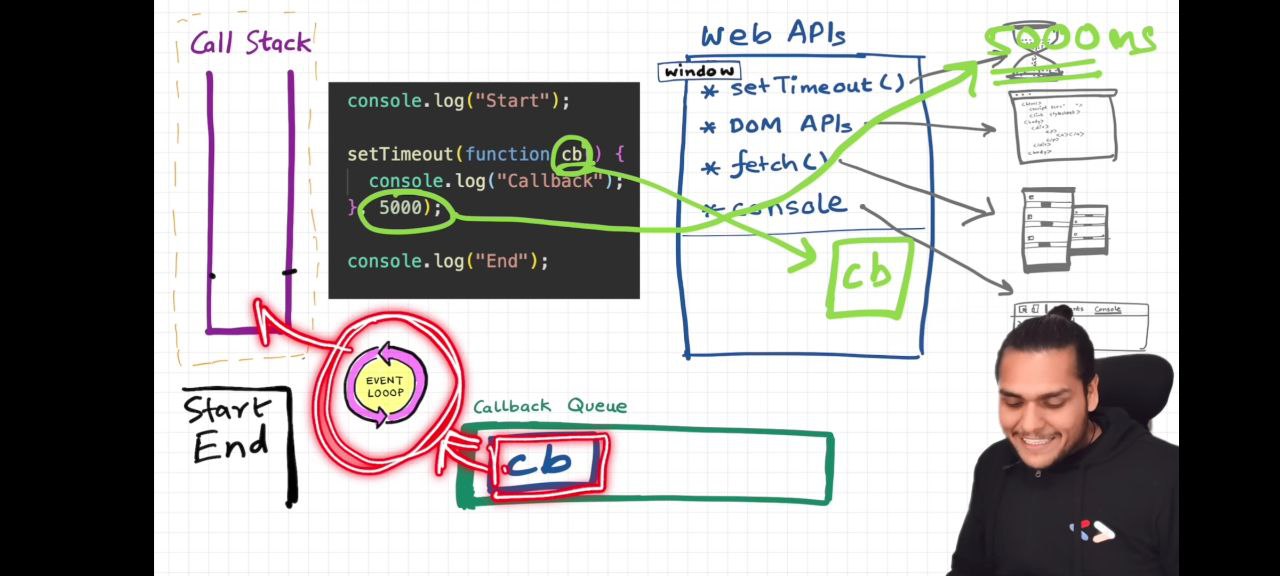 Call Stack
console.log("Start");
setTimeout(function cb() {
console.log("Callback");
}, 5000);
console.log("End");
Web APIs
window
* setTimeout()
* DOM APIs
* fetch()
* console
cb
5000ms
Console
EVENT
LOOOP
Start
End
Callback Queue
cb